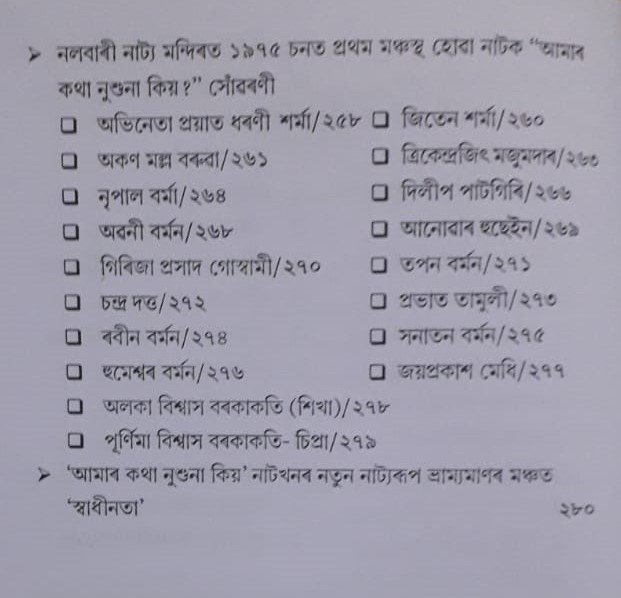 ➤ নলবাৰী নাট্য মন্দিৰত ১৯৭৫ চনত প্ৰথম মঞ্চস্থ হোৱা নাটক “আমাৰ
কথা নুশুনা কিয়?” সোঁৱৰণী
❑ অভিনেতা প্ৰয়াত ধৰণী শৰ্মা/২৫৮ ❑ জিতেন শৰ্মা/২৬০
❑ অৰুণ মল্ল বৰুৱা/২৬১ ❑ ত্ৰিকেন্দ্ৰজিৎ মজুমদাৰ/২৬৩
❑ নৃপাল বৰ্মা/২৬৪ ❑ দিলীপ পাটগিৰি/২৬৬
❑ অৱনী বৰ্মন/২৬৮ ❑ আনোৱাৰ হুছেইন/২৬৯
❑ গিৰিজা প্ৰসাদ গোস্বামী/২৭০ ❑ তপন বৰ্মন/২৭১
❑ চন্দ্ৰ দত্ত/২৭২ ❑ প্ৰভাত তামুলী/২৭৩
❑ ৰবীন বৰ্মন/২৭৪ ❑ সনাতন বৰ্মন/২৭৫
❑ হমেশ্বৰ বৰ্মন/২৭৬ ❑ জয়প্ৰকাশ মেধি/২৭৭
❑ অলকা বিশ্বাস বৰকাকতি (শিখা)/২৭৮
❑ পূৰ্ণিমা বিশ্বাস বৰকাকতি- চিপ্ৰা/২৭৯
➤ ‘আমাৰ কথা নুশুনা কিয়’ নাটখনৰ নতুন নাট্যৰূপ ভ্ৰাম্যমাণৰ মঞ্চত
‘স্বাধীনতা’ ২৮০